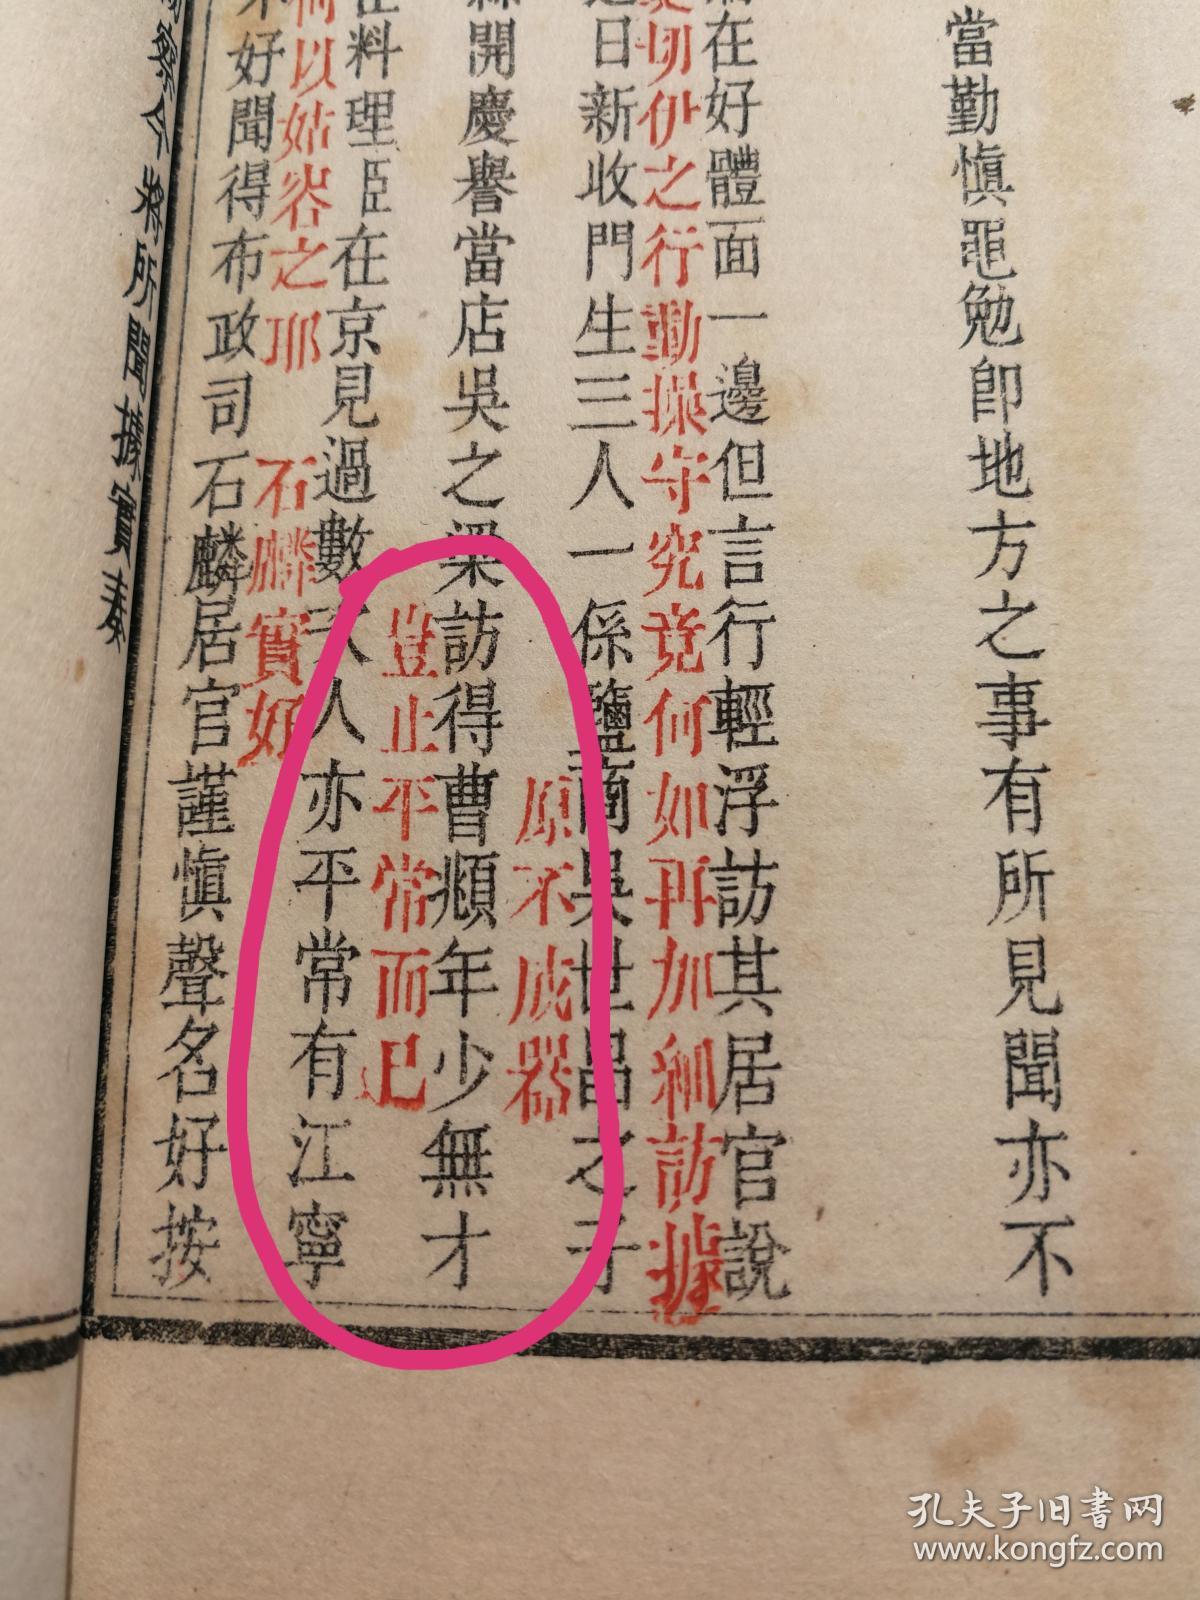 當勤慎黽勉即地方之事有所見聞亦不
在好體面一邊但言行輕浮訪其居官說
切伊之行動操守究竟何如再加細訪據
日新收門生三人一係鹽商吳世昌之子
原不成器
開慶譽當店吳之梁訪得曹頫年少無才
豈止平常而已
料理臣在京見過數次人亦平常有江寧
何以姑容之耶 石麟實好
好聞得布政司石麟居官謹慎聲名好按
察今將所聞據實奏
孔夫子旧书网
www.kongfz.com